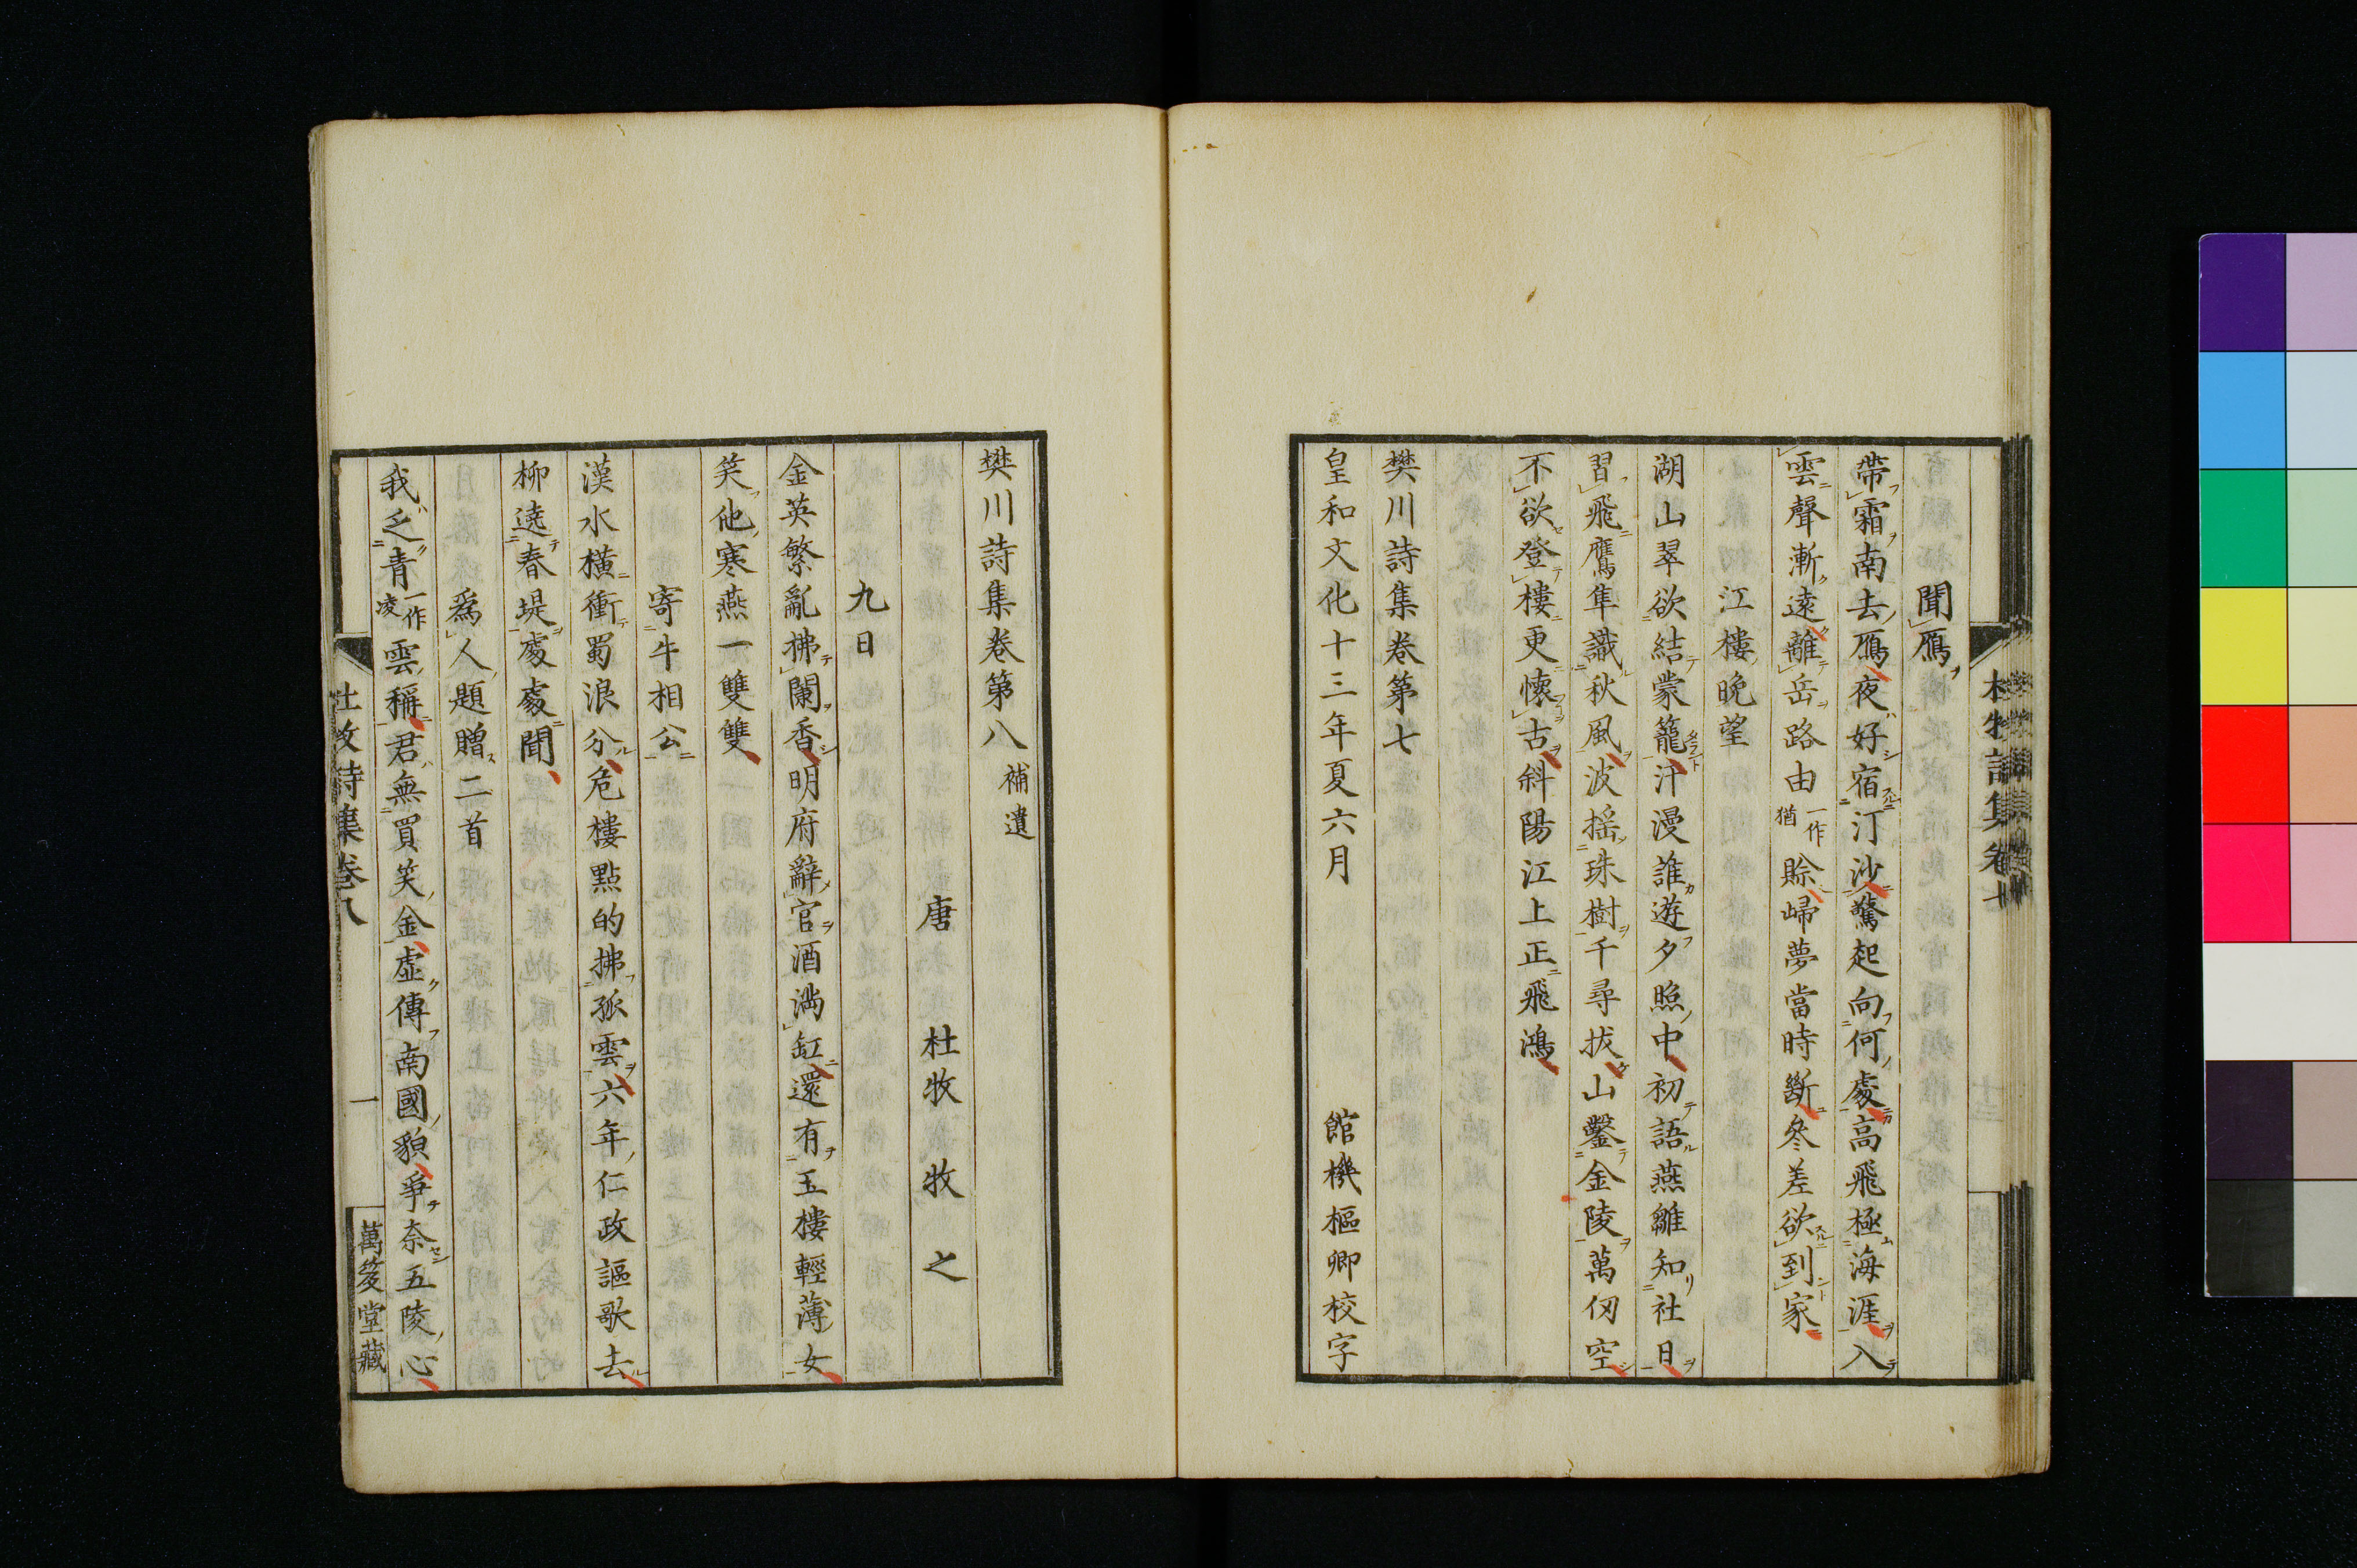 聞雁
帶霜南去雁夜好宿汀沙驚起向何處高飛極海涯入
雲聲漸遠離岳路由一作猶賒歸夢當時斷參差欲到家
江樓晚望
湖山翠欲結蒙籠汗漫誰遊夕照中初語燕雛知社日
習飛鷹隼識秋風波搖珠樹千尋拔山鑿金陵萬仞空
不欲登樓更懷古斜陽江上正飛鴻
樊川詩集卷第七
皇和文化十三年夏六月 館機樞卿校字
樊川詩集卷第八 補遺
唐 杜牧 牧之
九日
金英繁亂拂闌香明府辭官酒滿缸還有玉樓輕薄女
笑他寒燕一雙雙
寄牛相公
漢水橫衝蜀浪分危樓點的拂孤雲六年仁政謳歌去
柳遶春堤處處聞
爲人題贈二首
我乏青一作凌雲稱君無買笑金虛傳南國貌爭奈五陵心
杜牧詩集卷八
一
萬笈堂藏